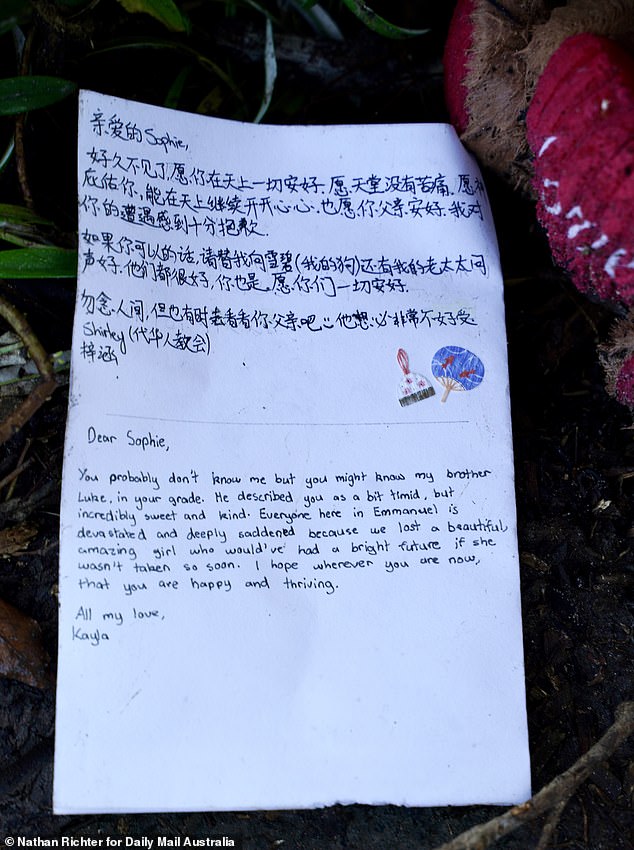 亲爱的Sophie,
好久不见了,愿你在天上一切安好.愿天堂没有苦痛.愿神
庇佑你,能在天上继续开开心心.也愿你父亲安好.我对
你的遭遇感到十分抱歉.
如果你可以的话,请替我向雪碧(我的狗)还有我的老太太问
声好.他们都很好,你也是,愿你们一切安好.
勿念人间,但也有时去看看你父亲吧 :( 他想必非常不好受
Shirley(代华人教会)
梓涵
Dear Sophie,
You probably don't know me but you might know my brother
Luke, in your grade. He described you as a bit timid, but
incredibly sweet and kind. Everyone here in Emmanuel is
devastated and deeply saddened because we lost a beautiful
amazing girl who would've had a bright future if she
wasn't taken so soon. I hope wherever you are now,
that you are happy and thriving.
All my love,
Kayla
© Nathan Richter for Daily Mail Australia